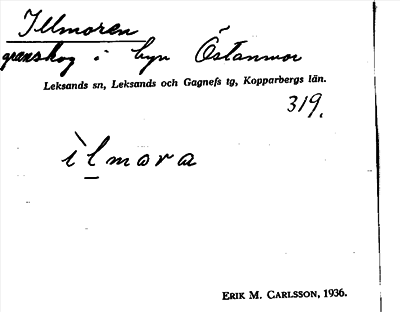 Illmoren
granskog i byn Östanmor
Leksands sn, Leksands och Gagnefs tg, Kopparbergs län.
319.
ìlmora
ERIK M. CARLSSON, 1936.